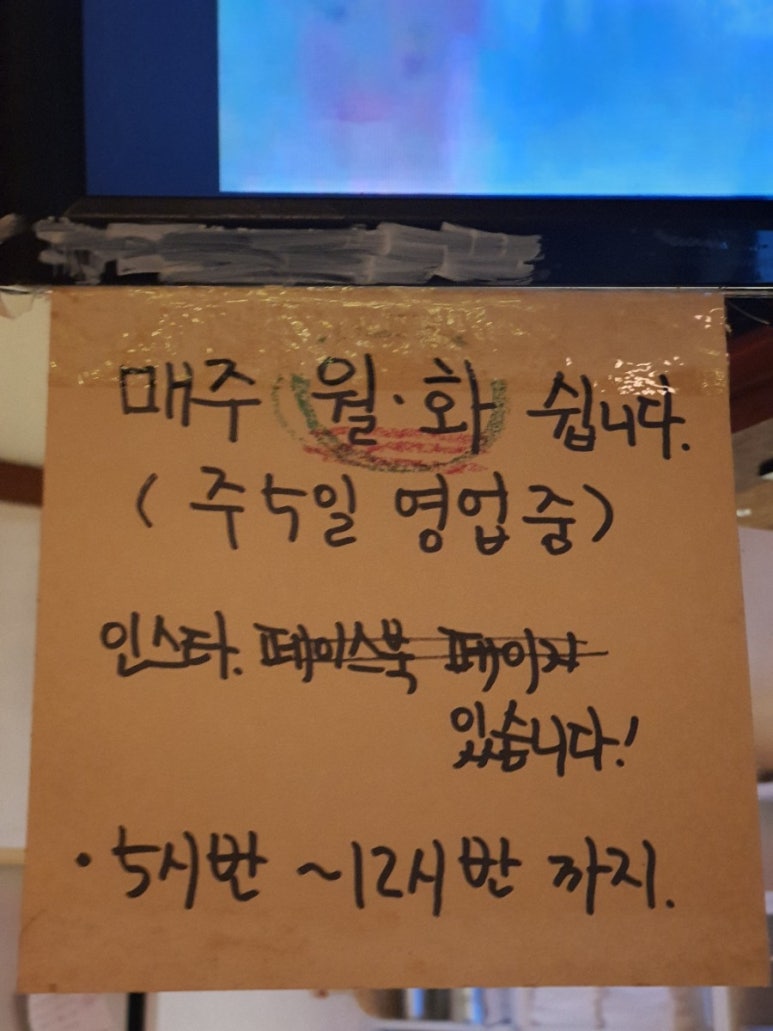 매주 월·화 쉽니다.
(주5일 영업중)
인스타. 페이스북 페이지
있습니다!
·5시반 ~12시반 까지.